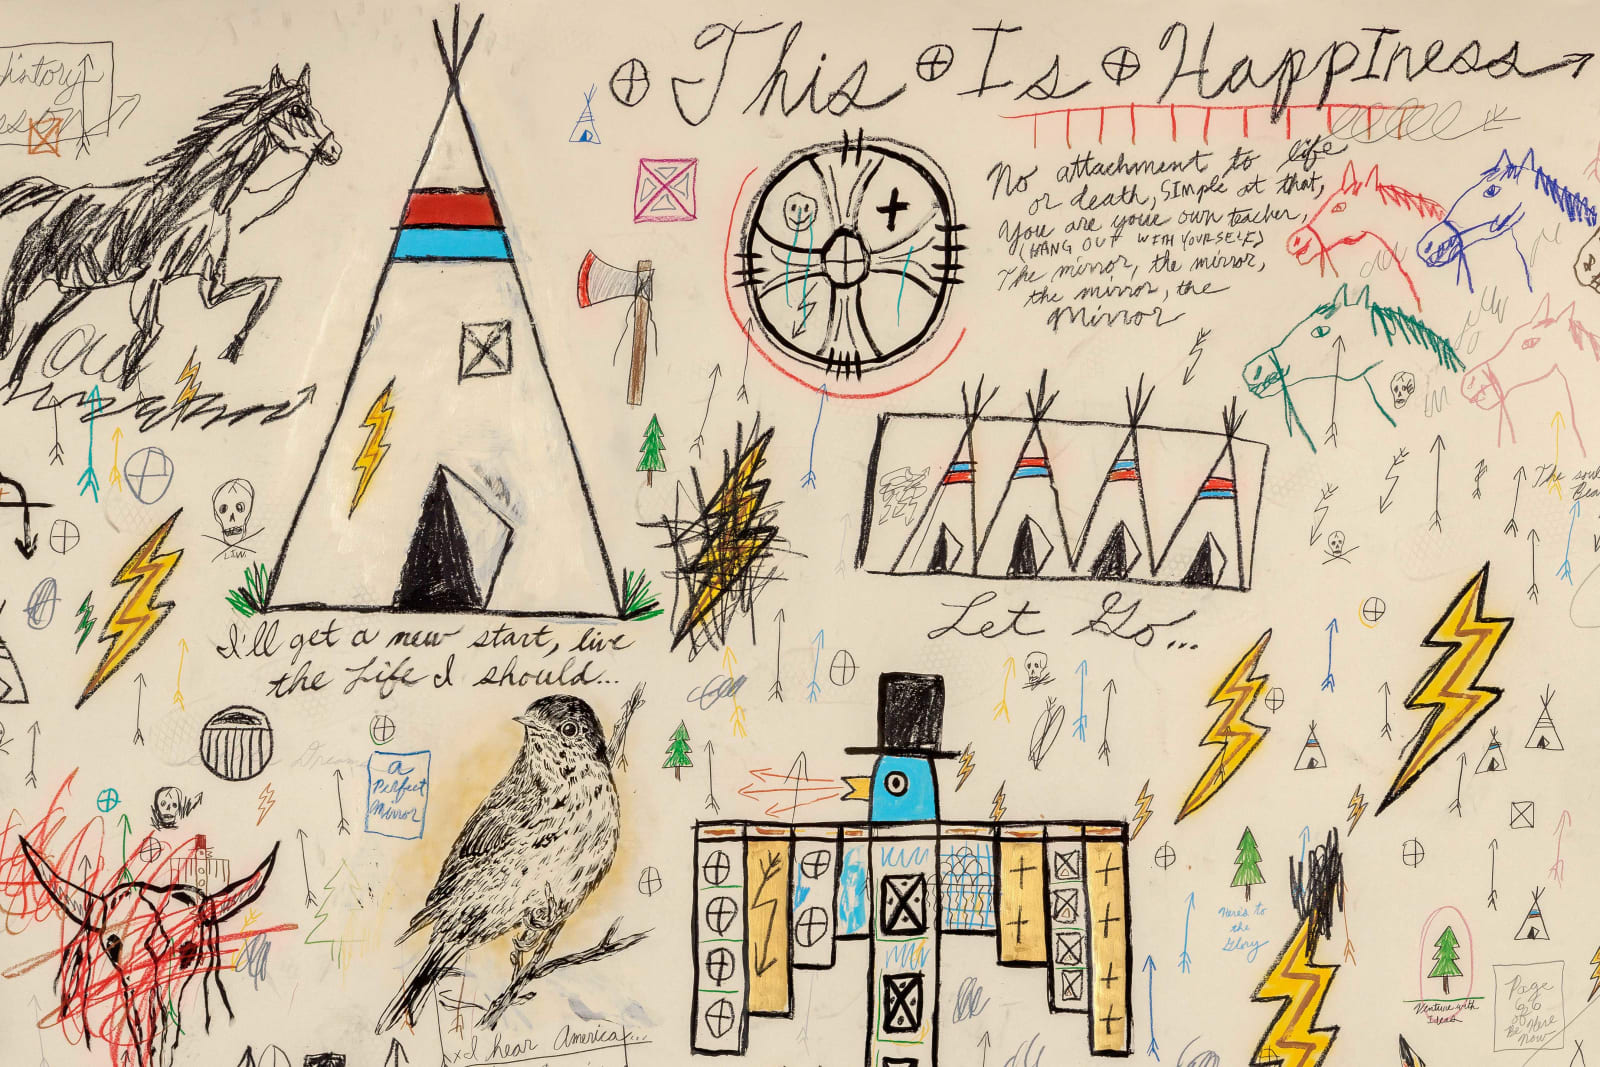 This Is Happiness
History
No attachment to life
or death, SIMple at that,
You are your own teacher,
(HANG OUT WITH YOURSELF)
The mirror, the mirror,
the mirror, the
Mirror
The soul
I'll get a new start, live
the Life I should...
Let Go...
a
Perfect
Mirror
Here's to
the
Glory
Venture with
Ideas
Page
of
Be Here
Now
I hear America...